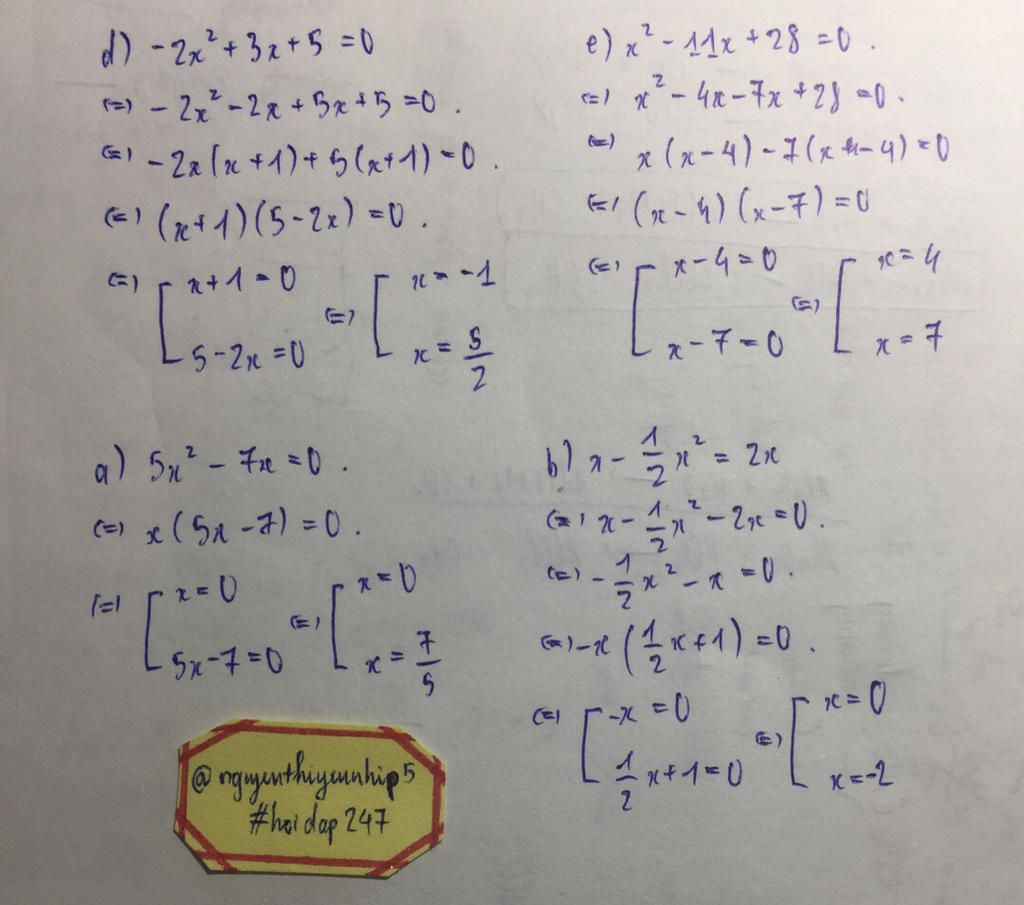 d) -2x² + 3x + 5 = 0
(=) -2x² - 2x + 5x + 5 = 0.
(=) -2x(x+1) + 5(x+1) = 0.
(=) (x+1)(5-2x) = 0.
(=) [ x+1 = 0 (=) [ x = -1
5-2x = 0 x = 5/2
e) x² - 11x + 28 = 0.
(=) x² - 4x - 7x + 28 = 0.
(=) x(x-4) - 7(x-4) = 0
(=) (x-4)(x-7) = 0
(=) [ x-4 = 0 (=) [ x = 4
x-7 = 0 x = 7
a) 5x² - 7x = 0.
(=) x(5x-7) = 0.
(=) [ x = 0 (=) [ x = 0
5x-7 = 0 x = 7/5
b) x - 1/2 x² = 2x
(=) x - 1/2 x² - 2x = 0.
(=) -1/2 x² - x = 0.
(=) -x(1/2 x + 1) = 0.
(=) [ -x = 0 (=) [ x = 0
1/2 x + 1 = 0 x = -2
#hoidap247